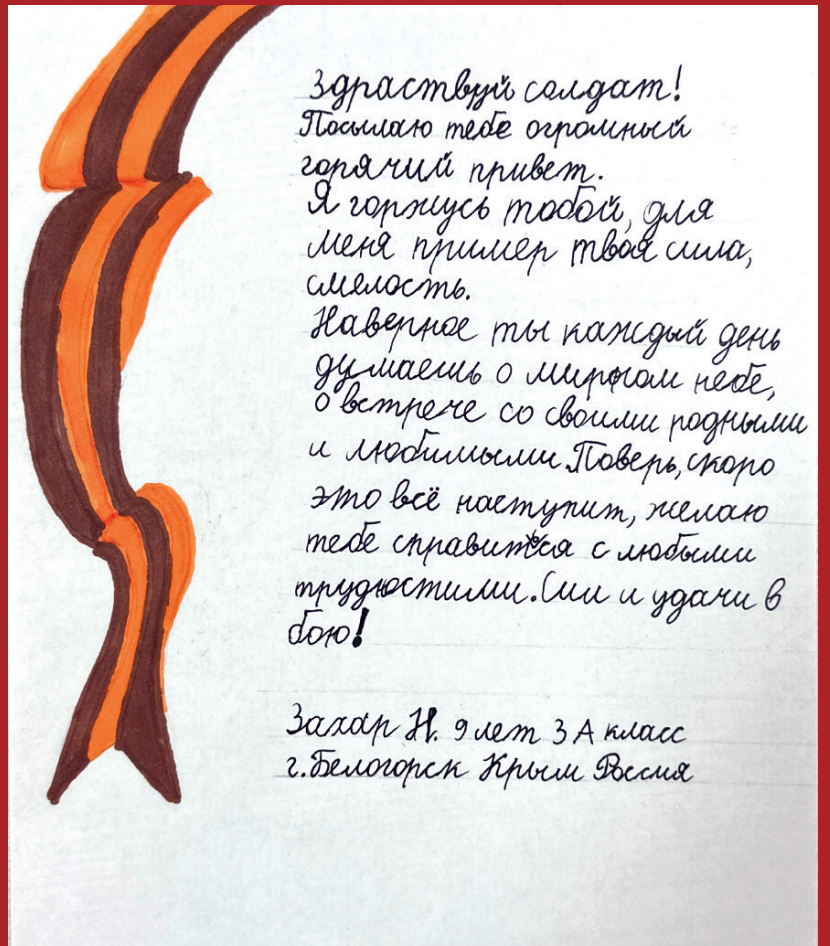 Здраствуй солдат!
Посылаю тебе огромный
горячий привет.
Я горжусь тобой, для
меня пример твоя сила,
смелость.
Наверное ты каждый день
думаешь о мирном небе,
о встрече со своими родными
и любимыми. Поверь, скоро
это всё наступит, желаю
тебе справится с любыми
трудностими. Сил и удачи в
бою!
Захар Н. 9 лет 3 А класс
г. Белогорск Крым Россия